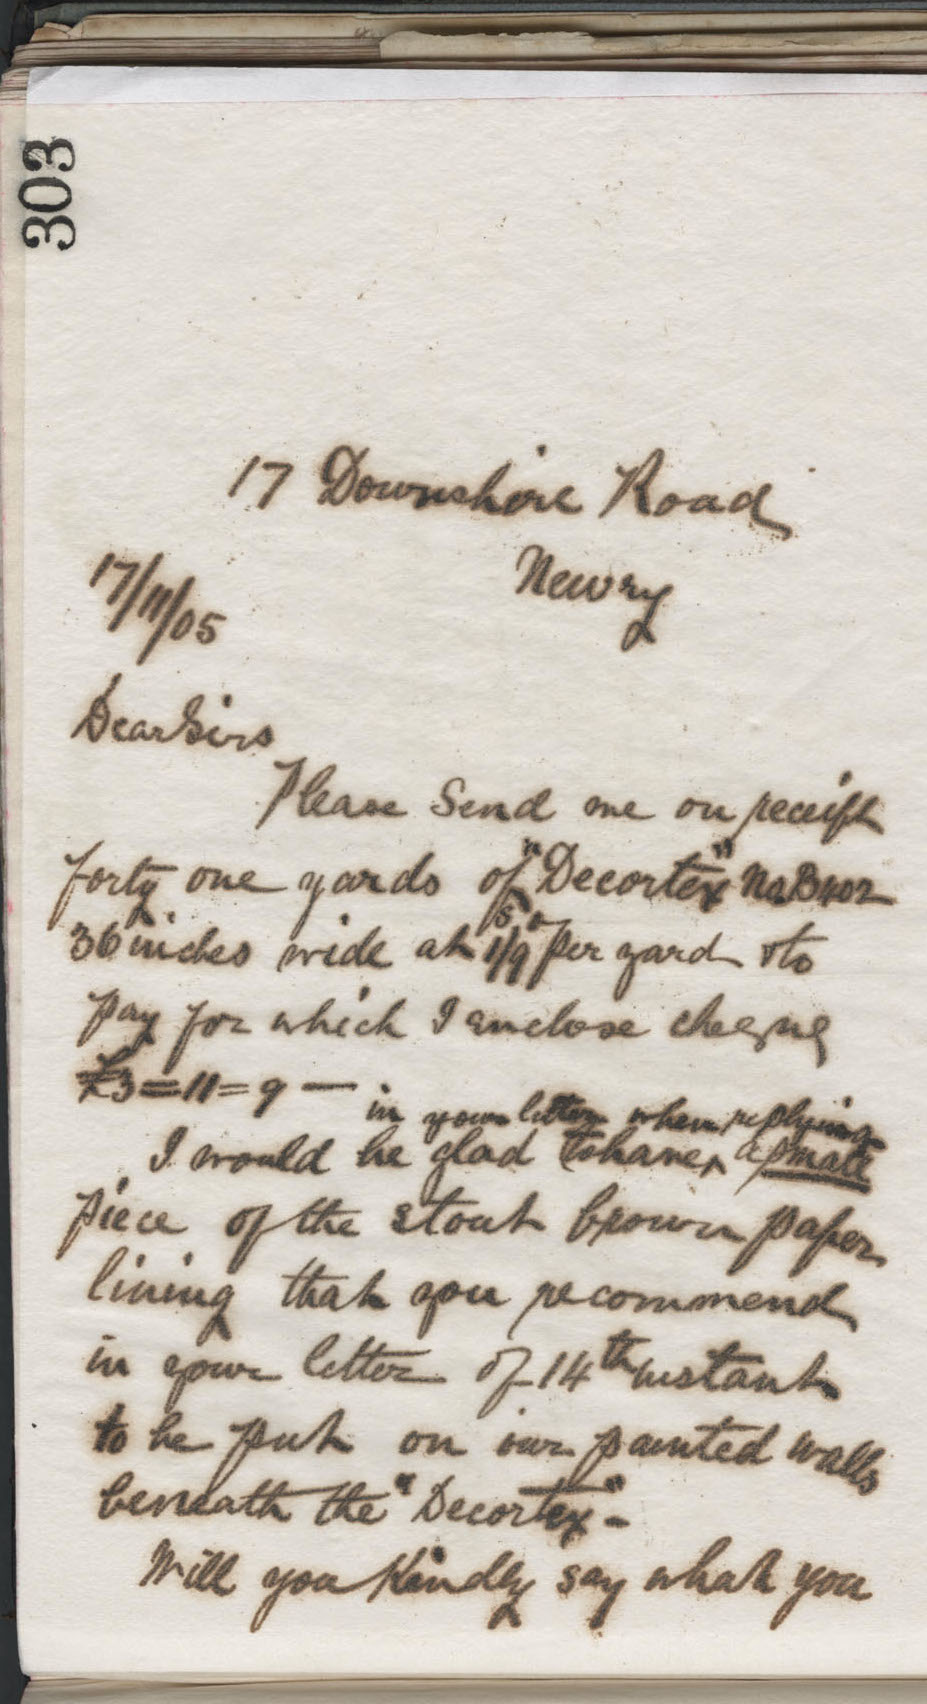 303
17 Downshire Road
Newry
17/11/05
Dear Sirs
Please Send me on receipt
forty one yards of "Decortex" No. B402
36 inches wide at 1s/9d per yard & to
pay for which I enclose cheque
£3=11=9 —
in your letter when replying
I would be glad to have, a small
piece of the stout brown paper
lining that you recommend
in your letter of 14th instant
to be put on our painted walls
beneath the "Decortex" -
Will you Kindly say what you